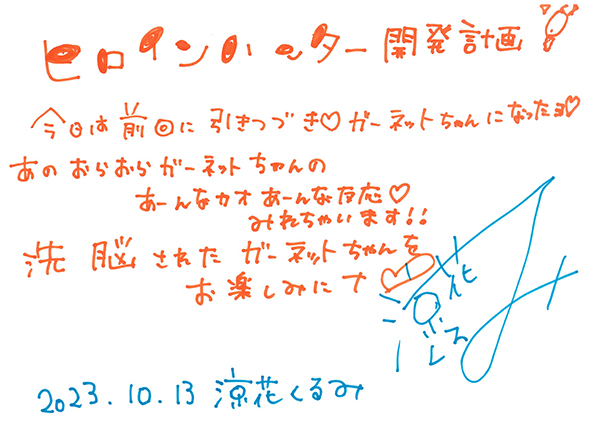 ヒロインハンター開発計画
今日は前回に引きつづき♡ガーネットちゃんになったヨ♡
あのおらおらガーネットちゃんの
あーんなカオあーんな反応♡
みれちゃいます!!
洗脳されたガーネットちゃんを
お楽しみにナ♡
涼花くるみ
2023.10.13 涼花くるみ